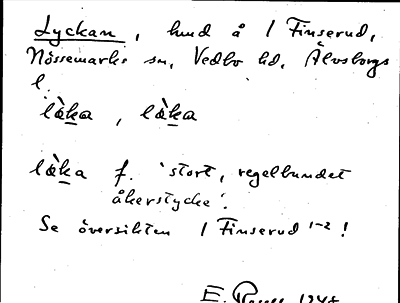 Lyckan, hmd å 1 Finserud,
Nössemarks sn, Vedbo hd, Älvsborgs
l.
lầka, lầka
lầka f. 'stort, regelbundet
åkerstycke'.
Se översikten 1 Finserud 1-2!
E.